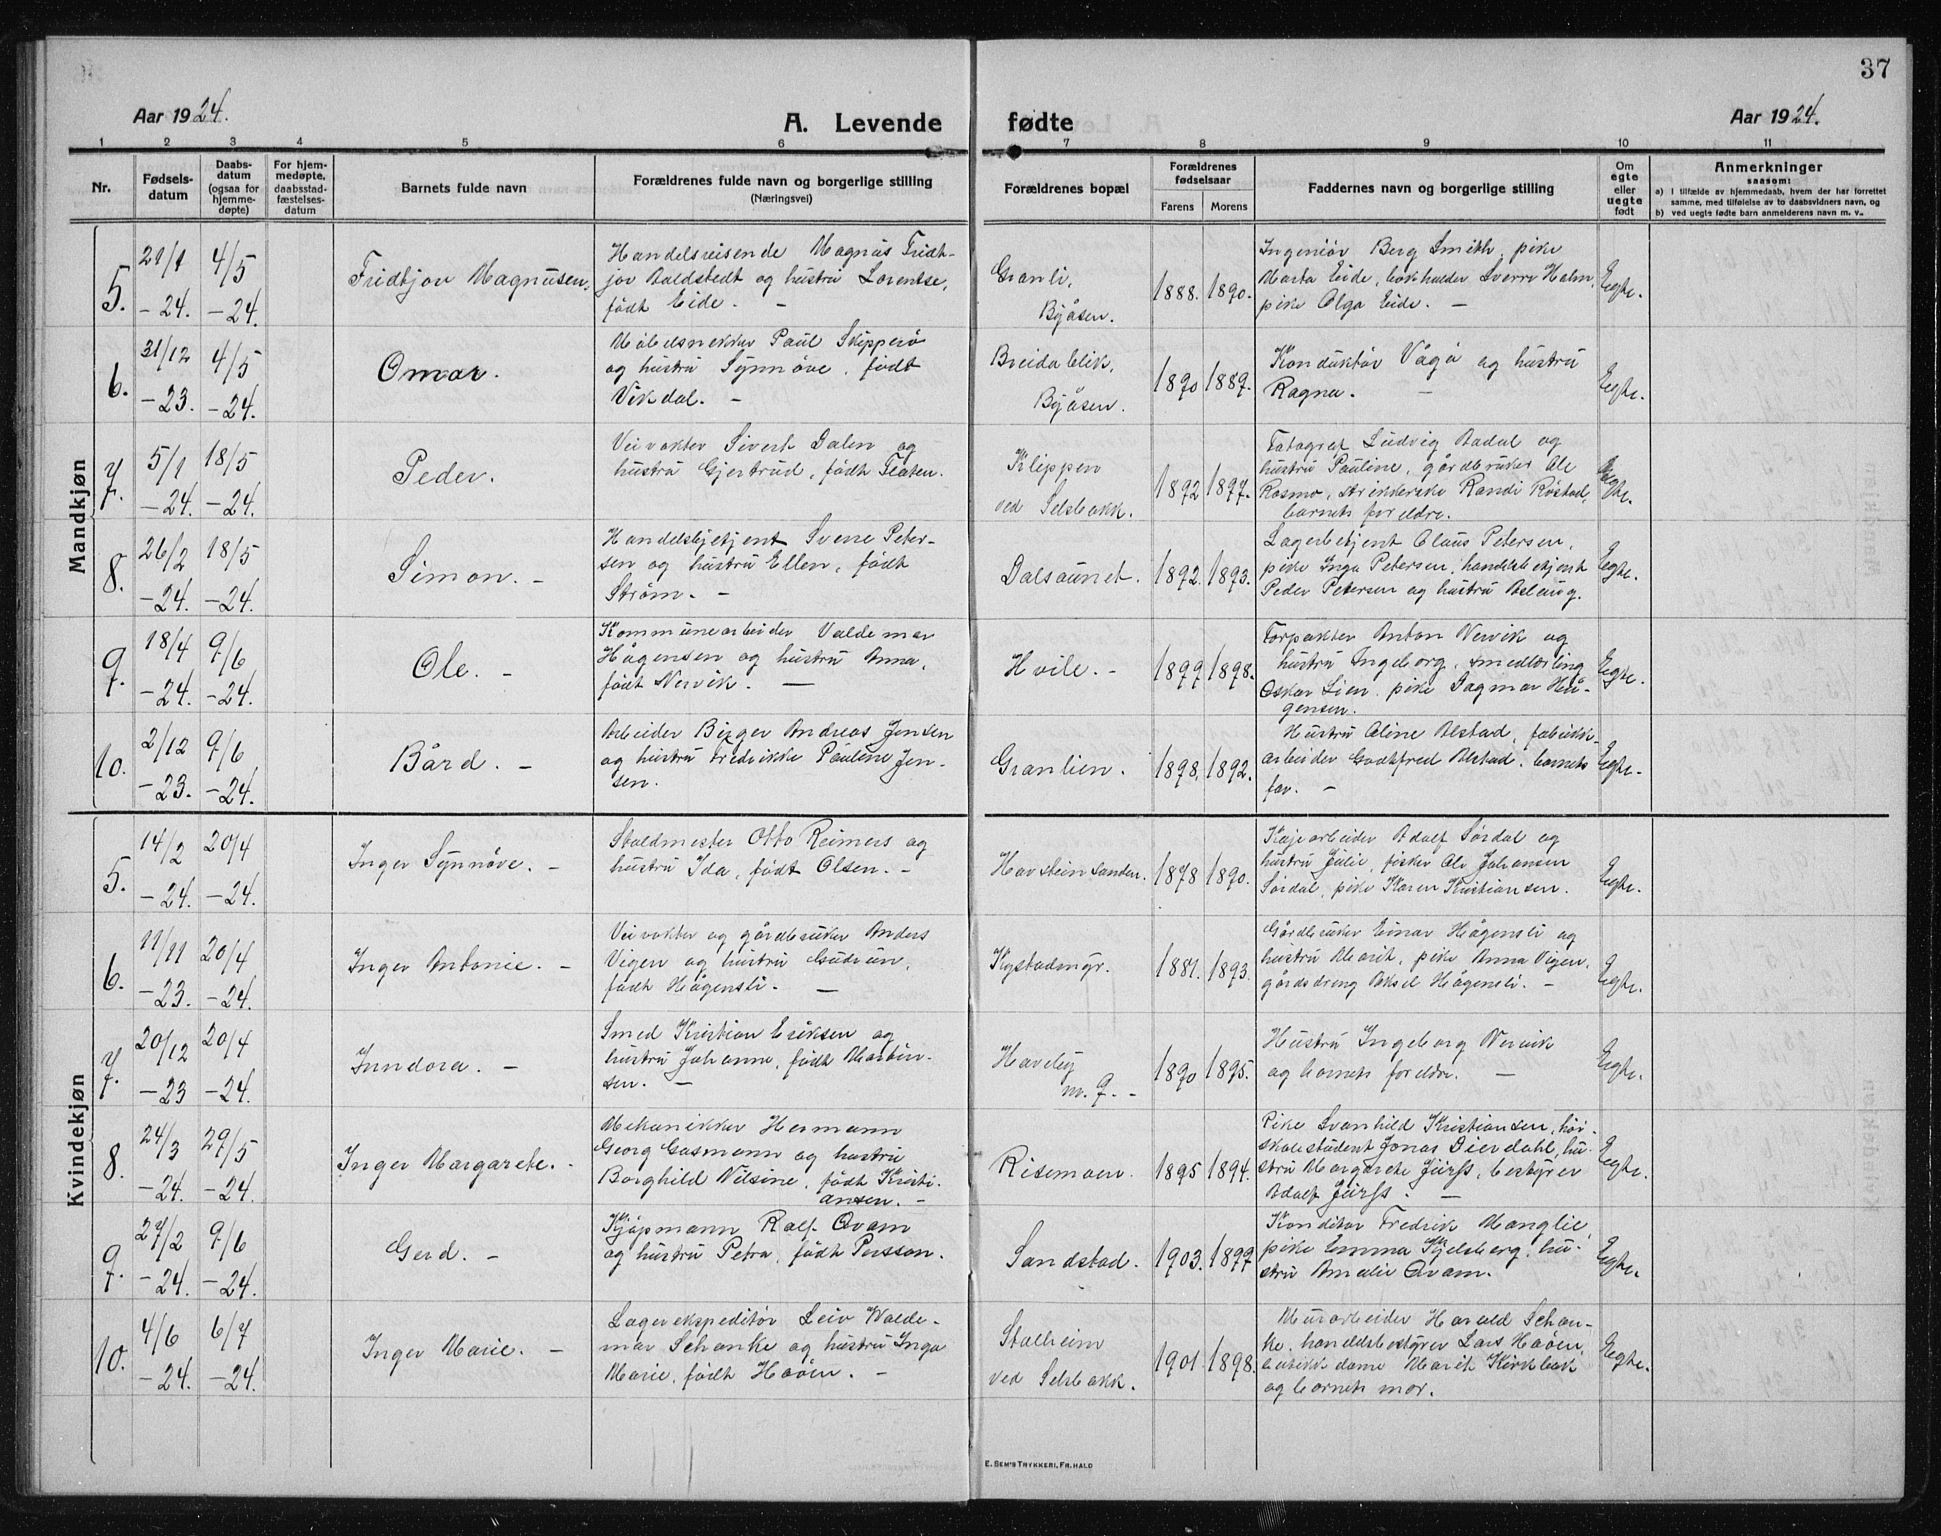 37
Aar 1924.
A. Levende
fødte
Aar 1924.
1 2 3 4 5 6 7 8 9 10 11
Nr.
Fødsels-
datum
Daabs-
datum
(ogsaa for
hjemme-
døpte)
For hjem-
medøpte,
daabsstad-
fæstelses-
datum
Barnets fulde navn
Forældrenes fulde navn og borgerlige stilling
(Næringsvei)
Forældrenes bopæl
Forældrenes
fødselsaar
Farens Morens
Faddernes navn og borgerlige stilling
Om
egte
eller
uegte
født
Anmerkninger
saasom:
a) I tilfælde av hjemmedaab, hvem der har forrettet
samme, med tilføielse av to daabsvidners navn, og
b) ved uegte fødte barn anmelderens navn m. v.
Mandkjøn
5.
21/1
-24.
4/5
-24.
Fridtjov Magnusen.
Handelsreisende Magnus Fridt-
jov Baldstedt og hustru Lorentse,
født Eide. -
Granli,
Byåsen.
1888. 1890.
Ingeniör Berg Smith, pike
Marta Eide, bokholder Sverre Halm,
pike Olga Eide. -
Egte.
6.
31/12
-23.
4/5
-24.
Omar.
Möbelsnekker Paul Skipperö
og hustru Synnöve, født
Vikdal. -
Breidablik,
Byåsen.
1890 1889.
Konduktör Vågö og hustru
Ragna. -
Egte.
7.
5/1
-24.
18/5
-24.
Peder.
Veivokter Sivert Dalen og
hustru Gjertrud, født Flaten.
Klippen
ved Selsbakk.
1892 1897.
Fotograf Ludvig Aadal og
hustru Pauline, gårdbruker Ole
Rosmo, strikkerske Randi Röstad,
barnets foreldre.
Egte.
8.
26/2
-24.
18/5
-24.
Simon. -
Handelsbetjent Sverre Peter-
sen og hustru Ellen, født
Ström. -
Dalsaunet.
1892. 1893.
Lagerbetjent Claus Petersen,
pike Inga Petersen, handelsbetjent
Peder Petersen og hustru Aslaug.
Egte.
9.
18/4
-24.
9/6
-24.
Ole. -
Kommunearbeider Valdemar
Hågensen og hustru Anna,
født Nervik. -
Hvile. -
1899 1898.
Forpakter Anton Nervik og
hustru Ingeborg, smedlærling
Oskar Lien, pike Dagmar Hå-
gensen.
Egte.
10.
2/12
-23.
9/6
-24.
Bård. -
Arbeider Birger Andreas Jensen
og hustru Fredrikke Pauline Jen-
sen.
Granlien.
1898. 1892.
Hustru Aline Alstad, fabrikk-
arbeider Godtfred Alstad, barnets
far. -
Egte.
Kvindekjøn
5.
14/2
-24.
20/4
-24.
Inger Synnöve. -
Staldmester Otto Reimers og
hustru Ida, født Olsen. -
Havsteinsanden.
1878 1890.
Kajearbeider Adolf Sördal og
hustru Julie, fisker Ole Johansen
Sördal, pike Karen Kristiansen.
Egte.
6.
11/11
-23.
20/4
-24.
Inger Antonie. -
Veivokter og gårdbruker Anders
Vigen og hustru Gudrun,
født Hågensli. -
Kystadmyr.
1881. 1893.
Gårdbruker Einar Hågensli og
hustru Marit, pike Anna Vigen,
gårdsdreng Aksel Hågensli. -
Egte.
7.
20/12
-23
20/4
-24.
Inndora. -
Smed Kristian Eriksen og
hustru Johanne, født Martin-
sen. -
Havelij
nr. 9. -
1890 1895.
Hustru Ingeborg Nervik
og barnets foreldre. -
Egte.
8.
24/3
-24.
29/5
-24.
Inger Margarete. -
Mekanikker Hermann
Georg Gasmann og hustru
Borghild Nilsine, født Kristi-
ansen. -
Risemoen.
1895 1894.
Pike Svanhild Kristiansen, höi-
skolestudent Jonas Dierdahl, hu-
stru Margarete Jürss, bestyrer
Adolf Jürss. -
Egte.
9.
27/2
-24.
9/6
-24.
Gerd. -
Kjöpmann Ralf Qvam
og hustru Petra, født Persson.
Sandstad.
1903. 1899
Konditor Fredrik Manglie,
pike Emma Kjelsberg, hu-
stru Amelie Qvam.
Egte.
10.
4/6
-24.
6/7
-24.
Inger Marie. -
Lagerekspeditör Leiv Walde-
mar Schanke og hustru Inga
Marie, født Haöen. -
Stalheim
ved Selsbakk.
1901. 1898.
Murarbeider Harald Schan-
ke, handelsbestyrer Lars Haöen,
butikkdame Marit Kirkbak
og barnets mor.
Egte.
E. SEM'S TRYKKERI, FR.HALD